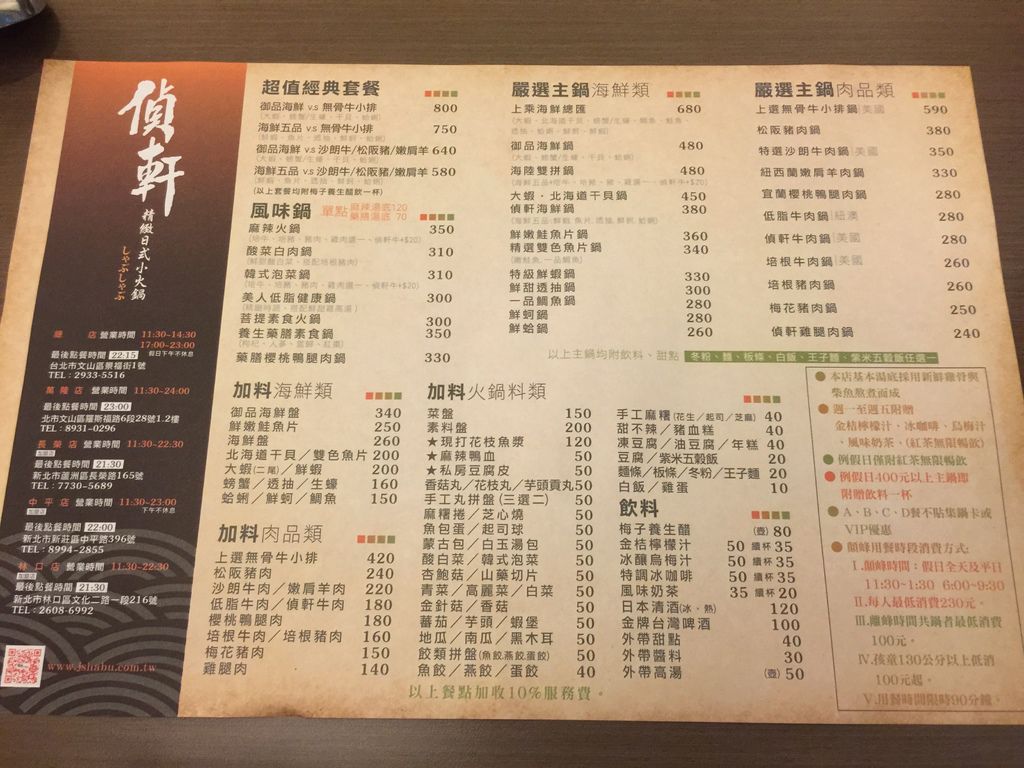 偵軒
精緻日式小火鍋
しゃぶしゃぶ
總 店 營業時間 11:30-14:30
17:00-23:00
假日下午不休息
最後點餐時間 22:15
台北市文山區景福街1號
TEL：2933-5516
萬隆店 營業時間 11:30-24:00
最後點餐時間 23:00
北市文山區羅斯福路6段28號1.2樓
TEL：8931-0296
長榮店 營業時間 11:30-22:30
最後點餐時間 21:30
新北市蘆洲區長榮路165號
TEL：7730-5689
中平店 營業時間 11:30-23:00
下午不休息
最後點餐時間 22:00
新北市新莊區中平路396號
TEL：8994-2855
林口店 營業時間 11:30-22:30
最後點餐時間 21:30
新北市林口區文化二路一段216號
TEL：2608-6992
www.jshabu.com.tw
超值經典套餐
御品海鮮 v.s 無骨牛小排 800
海鮮五品 v.s 無骨牛小排 750
御品海鮮 v.s 沙朗牛/松阪豬/嫩肩羊 640
海鮮五品 v.s 沙朗牛/松阪豬/嫩肩羊 580
(以上套餐均附梅子養生醋飲一杯)
風味鍋 單點 麻辣湯底120
藥膳湯底 70
麻辣火鍋 350
酸菜白肉鍋 310
韓式泡菜鍋 310
美人低脂健康鍋 300
菩提素食火鍋 300
養生藥膳素食鍋 350
藥膳櫻桃鴨腿肉鍋 330
嚴選主鍋海鮮類
上乘海鮮總匯 680
御品海鮮鍋 480
海陸雙拼鍋 480
大蝦．北海道干貝鍋 450
偵軒海鮮鍋 380
鮮嫩鮭魚片鍋 360
精選雙色魚片鍋 340
特級鮮蝦鍋 330
鮮甜透抽鍋 300
一品鯛魚鍋 280
鮮蚵鍋 280
鮮蛤鍋 260
嚴選主鍋肉品類
上選無骨牛小排鍋|美國 590
松阪豬肉鍋 380
特選沙朗牛肉鍋|美國 350
紐西蘭嫩肩羊肉鍋 330
宜蘭櫻桃鴨腿肉鍋 280
低脂牛肉鍋|紐澳 280
偵軒牛肉鍋|美國 280
培根牛肉鍋|美國 260
培根豬肉鍋 260
梅花豬肉鍋 250
偵軒雞腿肉鍋 240
以上主鍋均附飲料、甜點 冬粉、麵、板條、白飯、王子麵、紫米五穀飯任選一
加料海鮮類
御品海鮮盤 340
鮮嫩鮭魚片 250
海鮮盤 260
北海道干貝／雙色魚片 200
大蝦(二尾)／鮮蝦 200
螃蟹／透抽／生蠔 160
蛤蜊／鮮蚵／鯛魚 150
加料肉品類
上選無骨牛小排 420
松阪豬肉 240
沙朗牛肉／嫩肩羊肉 220
低脂牛肉／偵軒牛肉 180
櫻桃鴨腿肉 180
培根牛肉／培根豬肉 160
梅花豬肉 150
雞腿肉 140
加料火鍋料類
菜盤 150
素料盤 200
★現打花枝魚漿 120
★麻辣鴨血 50
★私房豆腐皮 50
香菇丸／花枝丸／芋頭貢丸 50
手工丸拼盤(三選二) 50
麻糬捲／芝心燒 50
魚包蛋／起司球 50
蒙古包／白玉湯包 50
酸白菜／韓式泡菜 50
杏鮑菇／山藥切片 50
青菜／高麗菜／白菜 50
金針菇／香菇 50
蕃茄／芋頭／蝦堡 50
地瓜／南瓜／黑木耳 50
餃類拼盤(魚餃.燕餃.蛋餃) 50
魚餃／燕餃／蛋餃 40
手工麻糬(花生／起司／芝麻) 40
甜不辣／豬血糕 40
凍豆腐／油豆腐／年糕 40
豆腐／紫米五穀飯 20
麵條／板條／冬粉／王子麵 20
白飯／雞蛋 10
飲料
梅子養生醋 (壺) 80
金桔檸檬汁 50 續杯 35
冰釀烏梅汁 50 續杯 35
特調冰咖啡 50 續杯 35
風味奶茶 35 續杯 20
日本清酒(冰．熱) 120
金牌台灣啤酒 100
外帶甜點 40
外帶醬料 30
外帶高湯 (壺) 50
以上餐點加收10%服務費。
●本店基本湯底採用新鮮雞骨與
柴魚熬煮而成
●週一至週五附贈
金桔檸檬汁、冰咖啡、烏梅汁
、風味奶茶、(紅茶無限暢飲)
●例假日僅附紅茶無限暢飲
●例假日400元以上主鍋即
附贈飲料一杯
●A、B、C、D餐不貼集鍋卡或
VIP優惠
●顛峰用餐時段消費方式:
I.顛峰時間：假日全天及平日
11:30~1:30 6:00~9:30
II.每人最低消費230元。
III.離峰時間共鍋者最低消費
100元。
IV.孩童130公分以上低消
100元起。
V.用餐時間限時90分鐘。